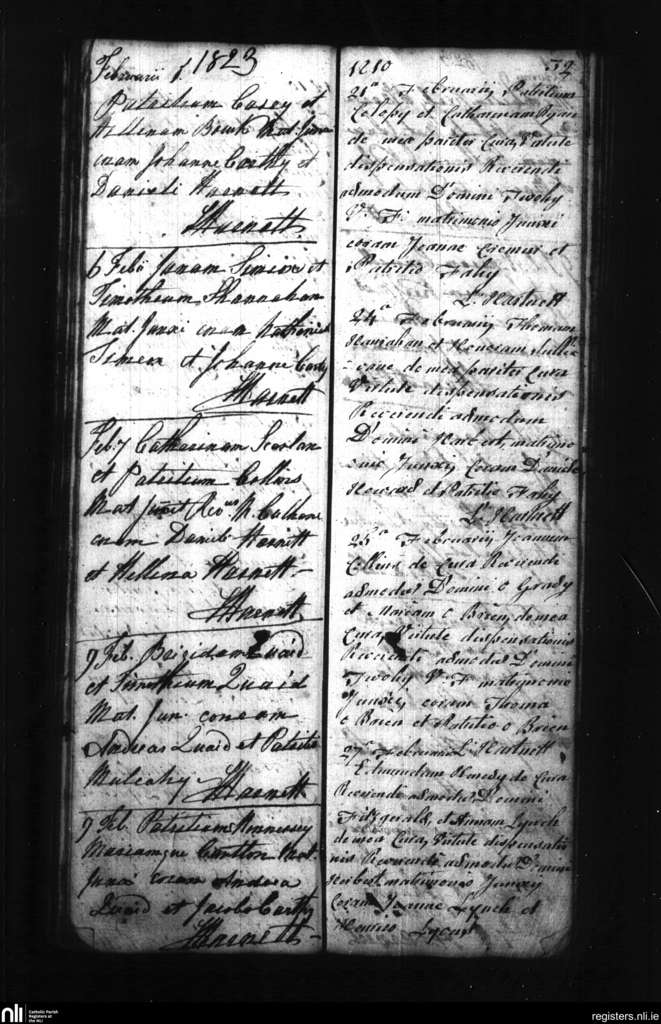 Februarii 1º 1823
Patritium Casey et
Hellenam Bourk Mat. Junxi
coram Johanne Carthy et
Danieli Harnett
LHarnett
6 Febii Janam Simion et
Timotheum Shannahan
Mat. Junxi coram
et Johanne Carthy
LHarnett
Feb. 7 Catharinam Scanlan
et Patritium Collins
Mat Junxit
coram Daniel Harnett
et Hellena Harnett
LHarnett
9 Feb. Brigidam Quaid
et Timotheum Quaid
Mat. Jun. coram
Andreas Quaid et Patritio
Mulcahy LHarnett
9 Feb. Patritium Hennessy
Mariamque Mat.
Junxi coram Andrea
Quaid et Jacobo Carthy
LHarnett
1810 32
21ª Februarii Patritium
et Catharinam Ryan
de mea pariter Cura, Virtute
dispensationis Reverendi
admodum Domini Twohy
V. F. matrimonio Junxi
coram Joanne et
Patritio Fahy
L. Hartnett
24ª Februarii Thomam
Hanrahan et Honoram
de mea pariter Cura
Virtute dispensationis
Reverendi admodum
Domini matrimo
nio Junxi Coram Daniele
et Patritio Fahy
L. Hartnett
25ª Februarii Joannem
Collins de Cura Reverendi
admodum Domini O Grady
et Mariam O Brien, de mea
Cura, Virtute dispensationis
Reverendi admodum Domini
Twohy V. F. matrimonio
Junxi, coram Thoma
O Brien et Patritio O Brien
27ª Februarii L. Hartnett
Edmundum de Cura
Reverendi admodum Domini
Fitzgerald, et Annam Lynch
de mea Cura, Virtute dispensatio
nis Reverendi admodum Domini
matrimonio Junxi
Coram Joanne Lynch et
Lynch
nli Catholic Parish
Registers at
the NLI
registers.nli.ie